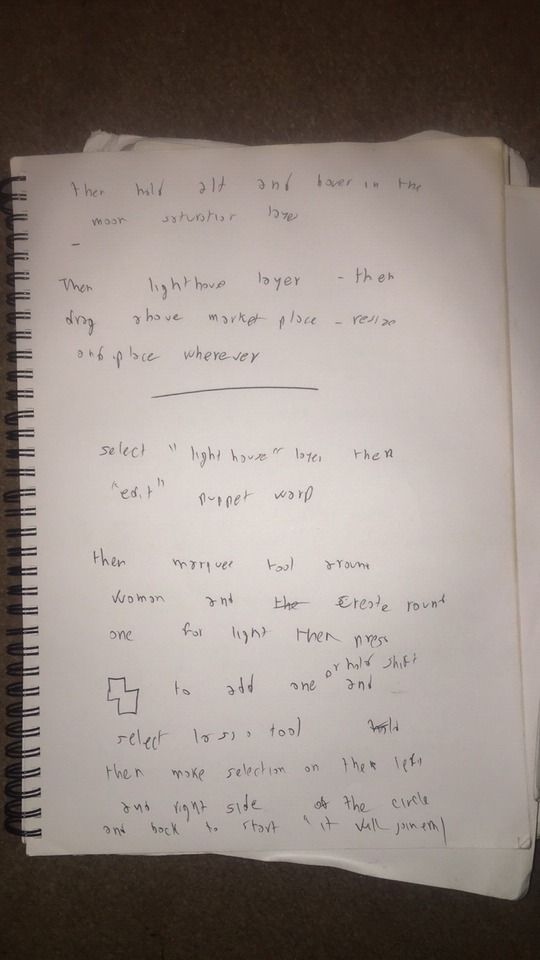 then hold alt and hover in the
moon saturation layer
-
Then lighthouse layer - then
drag above market place - resize
and place wherever
select "light house" layer then
"edit" puppet warp
then marquee tool around
woman and the create round
one for light then press
or hold shift
to add one and
select lasso tool hold
then make selection on then left
and right side of the circle
and back to start "it will join em)